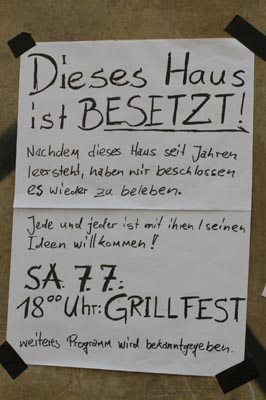 Dieses Haus
ist BESETZT!
Nachdem dieses Haus seit Jahren
leersteht, haben wir beschlossen
es wieder zu beleben.
Jede und jeder ist mit ihren/seinen
Ideen willkommen!
SA. 7.7.:
18⁰⁰ Uhr: GRILLFEST
weiteres Programm wird bekanntgegeben.